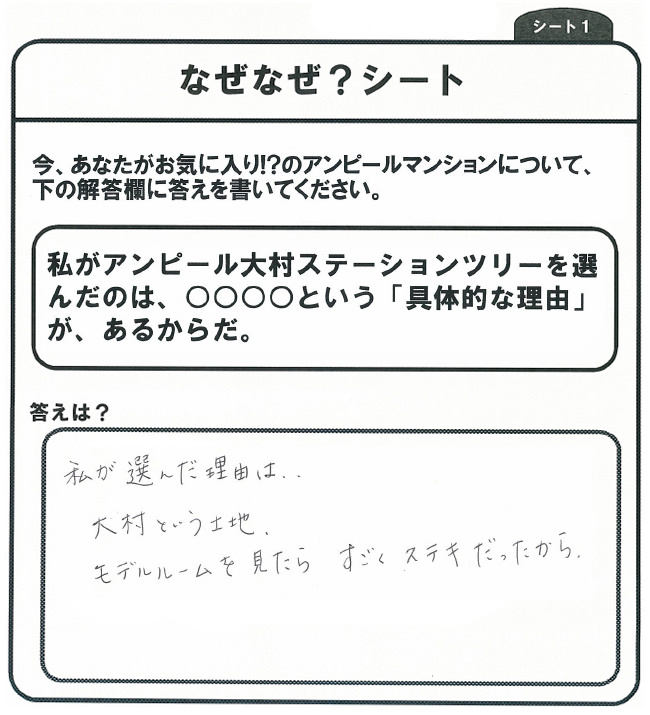 シート1
なぜなぜ？シート
今、あなたがお気に入り!?のアンピールマンションについて、
下の解答欄に答えを書いてください。
私がアンピール大村ステーションツリーを選
んだのは、〇〇〇〇という「具体的な理由」
が、あるからだ。
答えは？
私が選んだ理由は..
大村という土地.
モデルルームを見たら すごく ステキだったから.